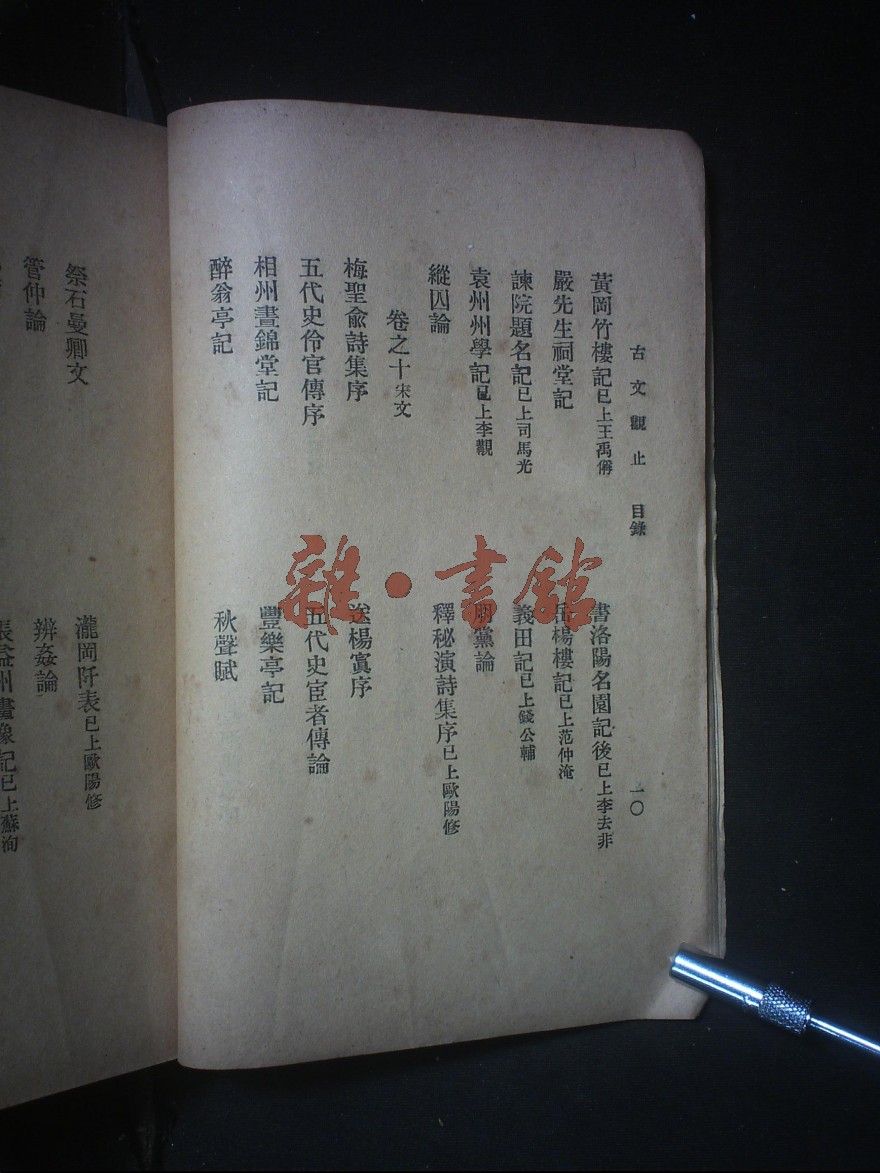 古文觀止 目錄 一〇
黃岡竹樓記已上王禹偁 書洛陽名園記後已上李去非
嚴先生祠堂記 岳陽樓記已上范仲淹
諫院題名記已上司馬光 義田記已上錢公輔
袁州州學記已上李覯 朋黨論
縱囚論 釋秘演詩集序已上歐陽修
卷之十宋文
梅聖俞詩集序 送楊寘序
五代史伶官傳序 五代史宦者傳論
相州晝錦堂記 豐樂亭記
醉翁亭記 秋聲賦
祭石曼卿文 瀧岡阡表已上歐陽修
管仲論 辨姦論
張益州畫像記已上蘇洵
雜·書館